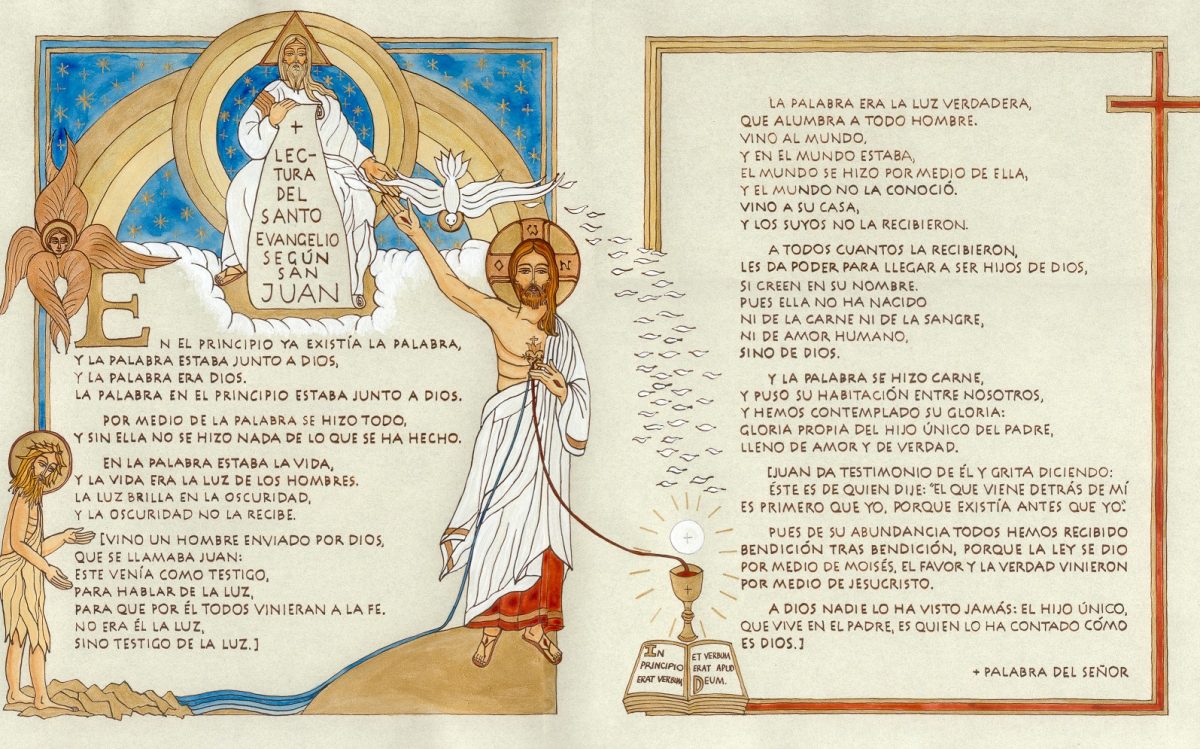 +
LEC-
TURA
DEL
SANTO
EVANGELIO
SEGÚN
SAN
JUAN
EN EL PRINCIPIO YA EXISTÍA LA PALABRA,
Y LA PALABRA ESTABA JUNTO A DIOS,
Y LA PALABRA ERA DIOS.
LA PALABRA EN EL PRINCIPIO ESTABA JUNTO A DIOS.
POR MEDIO DE LA PALABRA SE HIZO TODO,
Y SIN ELLA NO SE HIZO NADA DE LO QUE SE HA HECHO.
EN LA PALABRA ESTABA LA VIDA,
Y LA VIDA ERA LA LUZ DE LOS HOMBRES.
LA LUZ BRILLA EN LA OSCURIDAD,
Y LA OSCURIDAD NO LA RECIBE.
[VINO UN HOMBRE ENVIADO POR DIOS,
QUE SE LLAMABA JUAN:
ESTE VENÍA COMO TESTIGO,
PARA HABLAR DE LA LUZ,
PARA QUE POR ÉL TODOS VINIERAN A LA FE.
NO ERA ÉL LA LUZ,
SINO TESTIGO DE LA LUZ.]
O Ω N
LA PALABRA ERA LA LUZ VERDADERA,
QUE ALUMBRA A TODO HOMBRE.
VINO AL MUNDO,
Y EN EL MUNDO ESTABA,
EL MUNDO SE HIZO POR MEDIO DE ELLA,
Y EL MUNDO NO LA CONOCIÓ.
VINO A SU CASA,
Y LOS SUYOS NO LA RECIBIERON.
A TODOS CUANTOS LA RECIBIERON,
LES DA PODER PARA LLEGAR A SER HIJOS DE DIOS,
SI CREEN EN SU NOMBRE.
PUES ELLA NO HA NACIDO
NI DE LA CARNE NI DE LA SANGRE,
NI DE AMOR HUMANO,
SINO DE DIOS.
Y LA PALABRA SE HIZO CARNE,
Y PUSO SU HABITACIÓN ENTRE NOSOTROS,
Y HEMOS CONTEMPLADO SU GLORIA:
GLORIA PROPIA DEL HIJO ÚNICO DEL PADRE,
LLENO DE AMOR Y DE VERDAD.
[JUAN DA TESTIMONIO DE ÉL Y GRITA DICIENDO:
ÉSTE ES DE QUIEN DIJE: "EL QUE VIENE DETRÁS DE MÍ
ES PRIMERO QUE YO, PORQUE EXISTÍA ANTES QUE YO".
PUES DE SU ABUNDANCIA TODOS HEMOS RECIBIDO
BENDICIÓN TRAS BENDICIÓN, PORQUE LA LEY SE DIO
POR MEDIO DE MOISÉS, EL FAVOR Y LA VERDAD VINIERON
POR MEDIO DE JESUCRISTO.
A DIOS NADIE LO HA VISTO JAMÁS: EL HIJO ÚNICO,
QUE VIVE EN EL PADRE, ES QUIEN LO HA CONTADO CÓMO
ES DIOS.]
+ PALABRA DEL SEÑOR
IN
PRINCIPIO
ERAT VERBUM
ET VERBUM
ERAT APUD
DEUM.